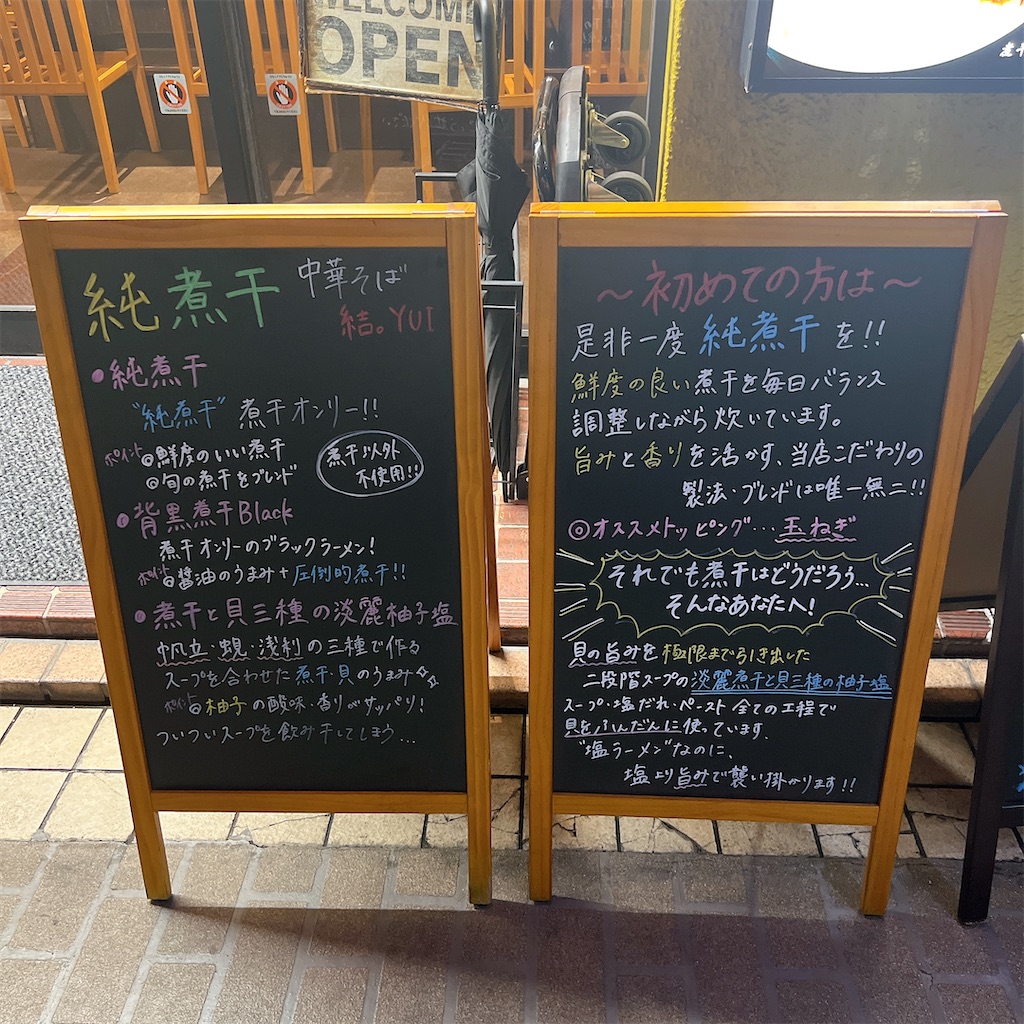 WELCOME
OPEN
煮干
純煮干 中華そば
結。YUI
•純煮干
"純煮干" 煮干オンリー!!
ポイント ◎鮮度のいい煮干
◎旬の煮干をブレンド
煮干以外
不使用!!
•背黒煮干Black
煮干オンリーのブラックラーメン!
ポイント ◎醤油のうまみ+圧倒的煮干!!
•煮干と貝三種の淡麗柚子塩
帆立・蜆・浅利の三種で作る
スープを合わせた煮干・貝のうまみ☆☆
ポイント ◎柚子の酸味・香りがサッパリ!
ついついスープを飲み干してしまう...
〜初めての方は〜
是非一度 純煮干 を!!
鮮度の良い煮干を毎日バランス
調整しながら炊いています。
旨みと香りを活かす、当店こだわりの
製法・ブレンドは唯一無二!!
◎オススメトッピング…玉ねぎ
それでも煮干はどうだろう…
そんなあなたへ!
貝の旨みを極限まで引き出した
二段階スープの淡麗煮干と貝三種の柚子塩
スープ・塩だれ・ペースト 全ての工程で
貝をふんだんに使っています.
"塩ラーメン"なのに、
塩より旨みで襲い掛かります!!